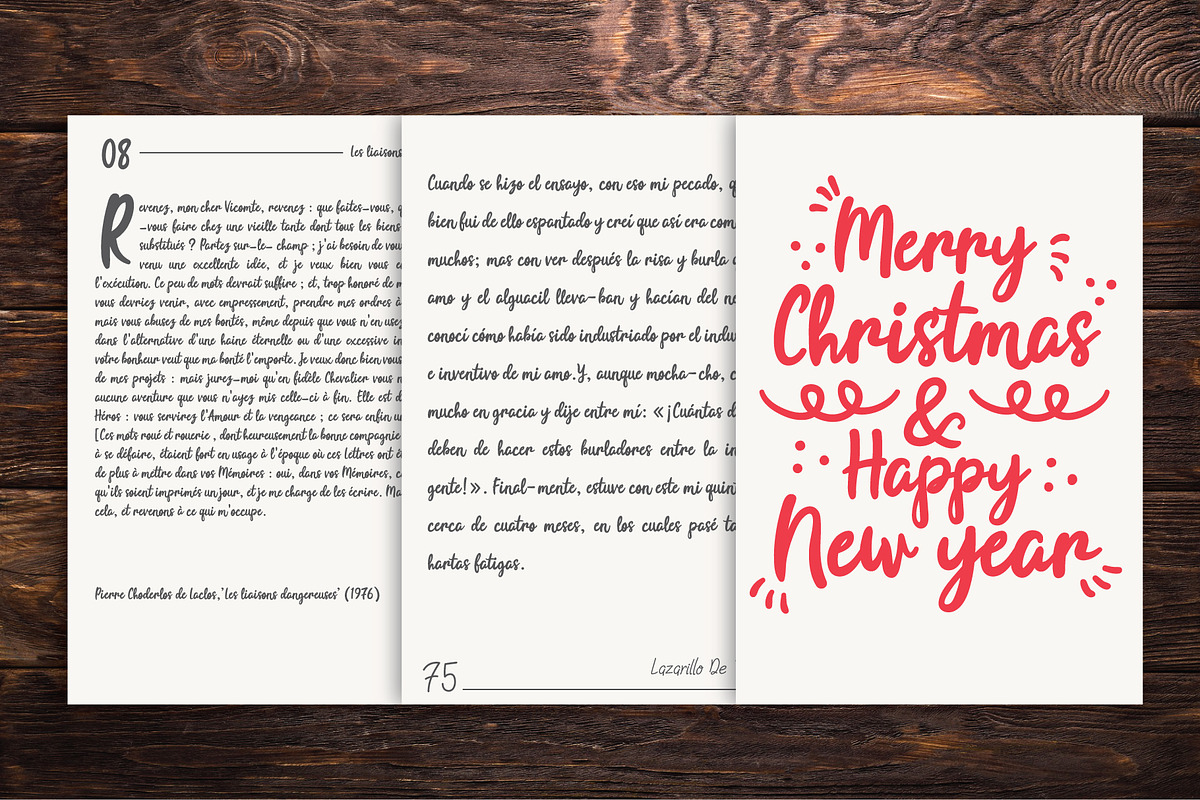 08
les liaisons
Revenez, mon cher Vicomte, revenez : que faites-vous,
-vous faire chez une vieille tante dont tous les biens
substitués ? Partez sur-le- champ ; j'ai besoin de vou
venu une excellente idée, et je veux bien vous
l'exécution. Ce peu de mots devrait suffire ; et, trop honoré de m
vous devriez venir, avec empressement, prendre mes ordres à
mais vous abusez de mes bontés, même depuis que vous n'en usez
dans l'alternative d'une haine éternelle ou d'une excessive in
votre bonheur veut que ma bonté l'emporte. Je veux donc bien vous
de mes projets : mais jurez-moi qu'en fidèle Chevalier vous n
aucune aventure que vous n'ayez mis celle-ci à fin. Elle est d
Héros : vous servirez l'Amour et la vengeance ; ce sera enfin u
[Ces mots roué et rouerie , dont heureusement la bonne compagnie
à se défaire, étaient fort en usage à l'époque où ces Lettres ont é
de plus à mettre dans vos Mémoires : oui, dans vos Mémoires, c
qu'ils soient imprimés un jour, et je me charge de les écrire. Ma
cela, et revenons à ce qui m'occupe.
Pierre Choderlos de Laclos,'les liaisons dangereuses' (1976)
Cuando se hizo el ensayo, con eso mi pecado, q
bien fui de ello espantado y creí que así era com
muchos; mas con ver después la risa y burla
amo y el alguacil lleva-ban y hacían del ne
conocí cómo había sido industriado por el indu
e inventivo de mi amo.Y, aunque mocha-cho, c
mucho en gracia y dije entre mí: «¡Cuántas d
deben de hacer estos burladores entre la in
gente!». Final-mente, estuve con este mi quin
cerca de cuatro meses, en los cuales pasé ta
hartas fatigas.
75
Lazarillo De
Merry
Christmas
&
Happy
New year